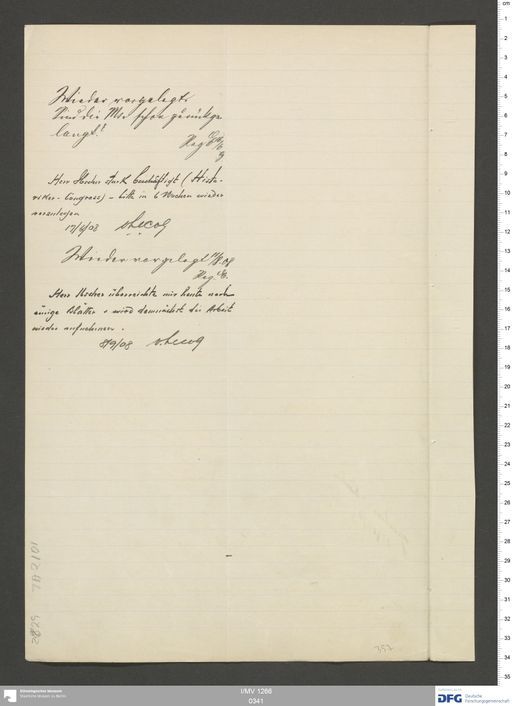 Wieder vorgelegt.
Sind die Mss schon zurückge
langt?
Reg
Herr Kocher stark beschäftigt (Histo-
riker-Congress) – bitte in 6 Wochen wieder
vorzulegen
17/6/08 v. Lecoq
Wieder vorgelegt 08
Reg.
Herr Kocher überreichte mir heute noch
einige Blätter u. wird demnächst die Arbeit
wieder aufnehmen.
8/9/08 v. Lecoq
357
Ethnologisches Museum
Staatliche Museen zu Berlin
I/MV 1266
0341
DFG
Deutsche
Forschungsgemeinschaft
cm
1
2
3
4
5
6
7
8
9
10
11
12
13
14
15
16
17
18
19
20
21
22
23
24
25
26
27
28
29
30
31
32
33
34
35